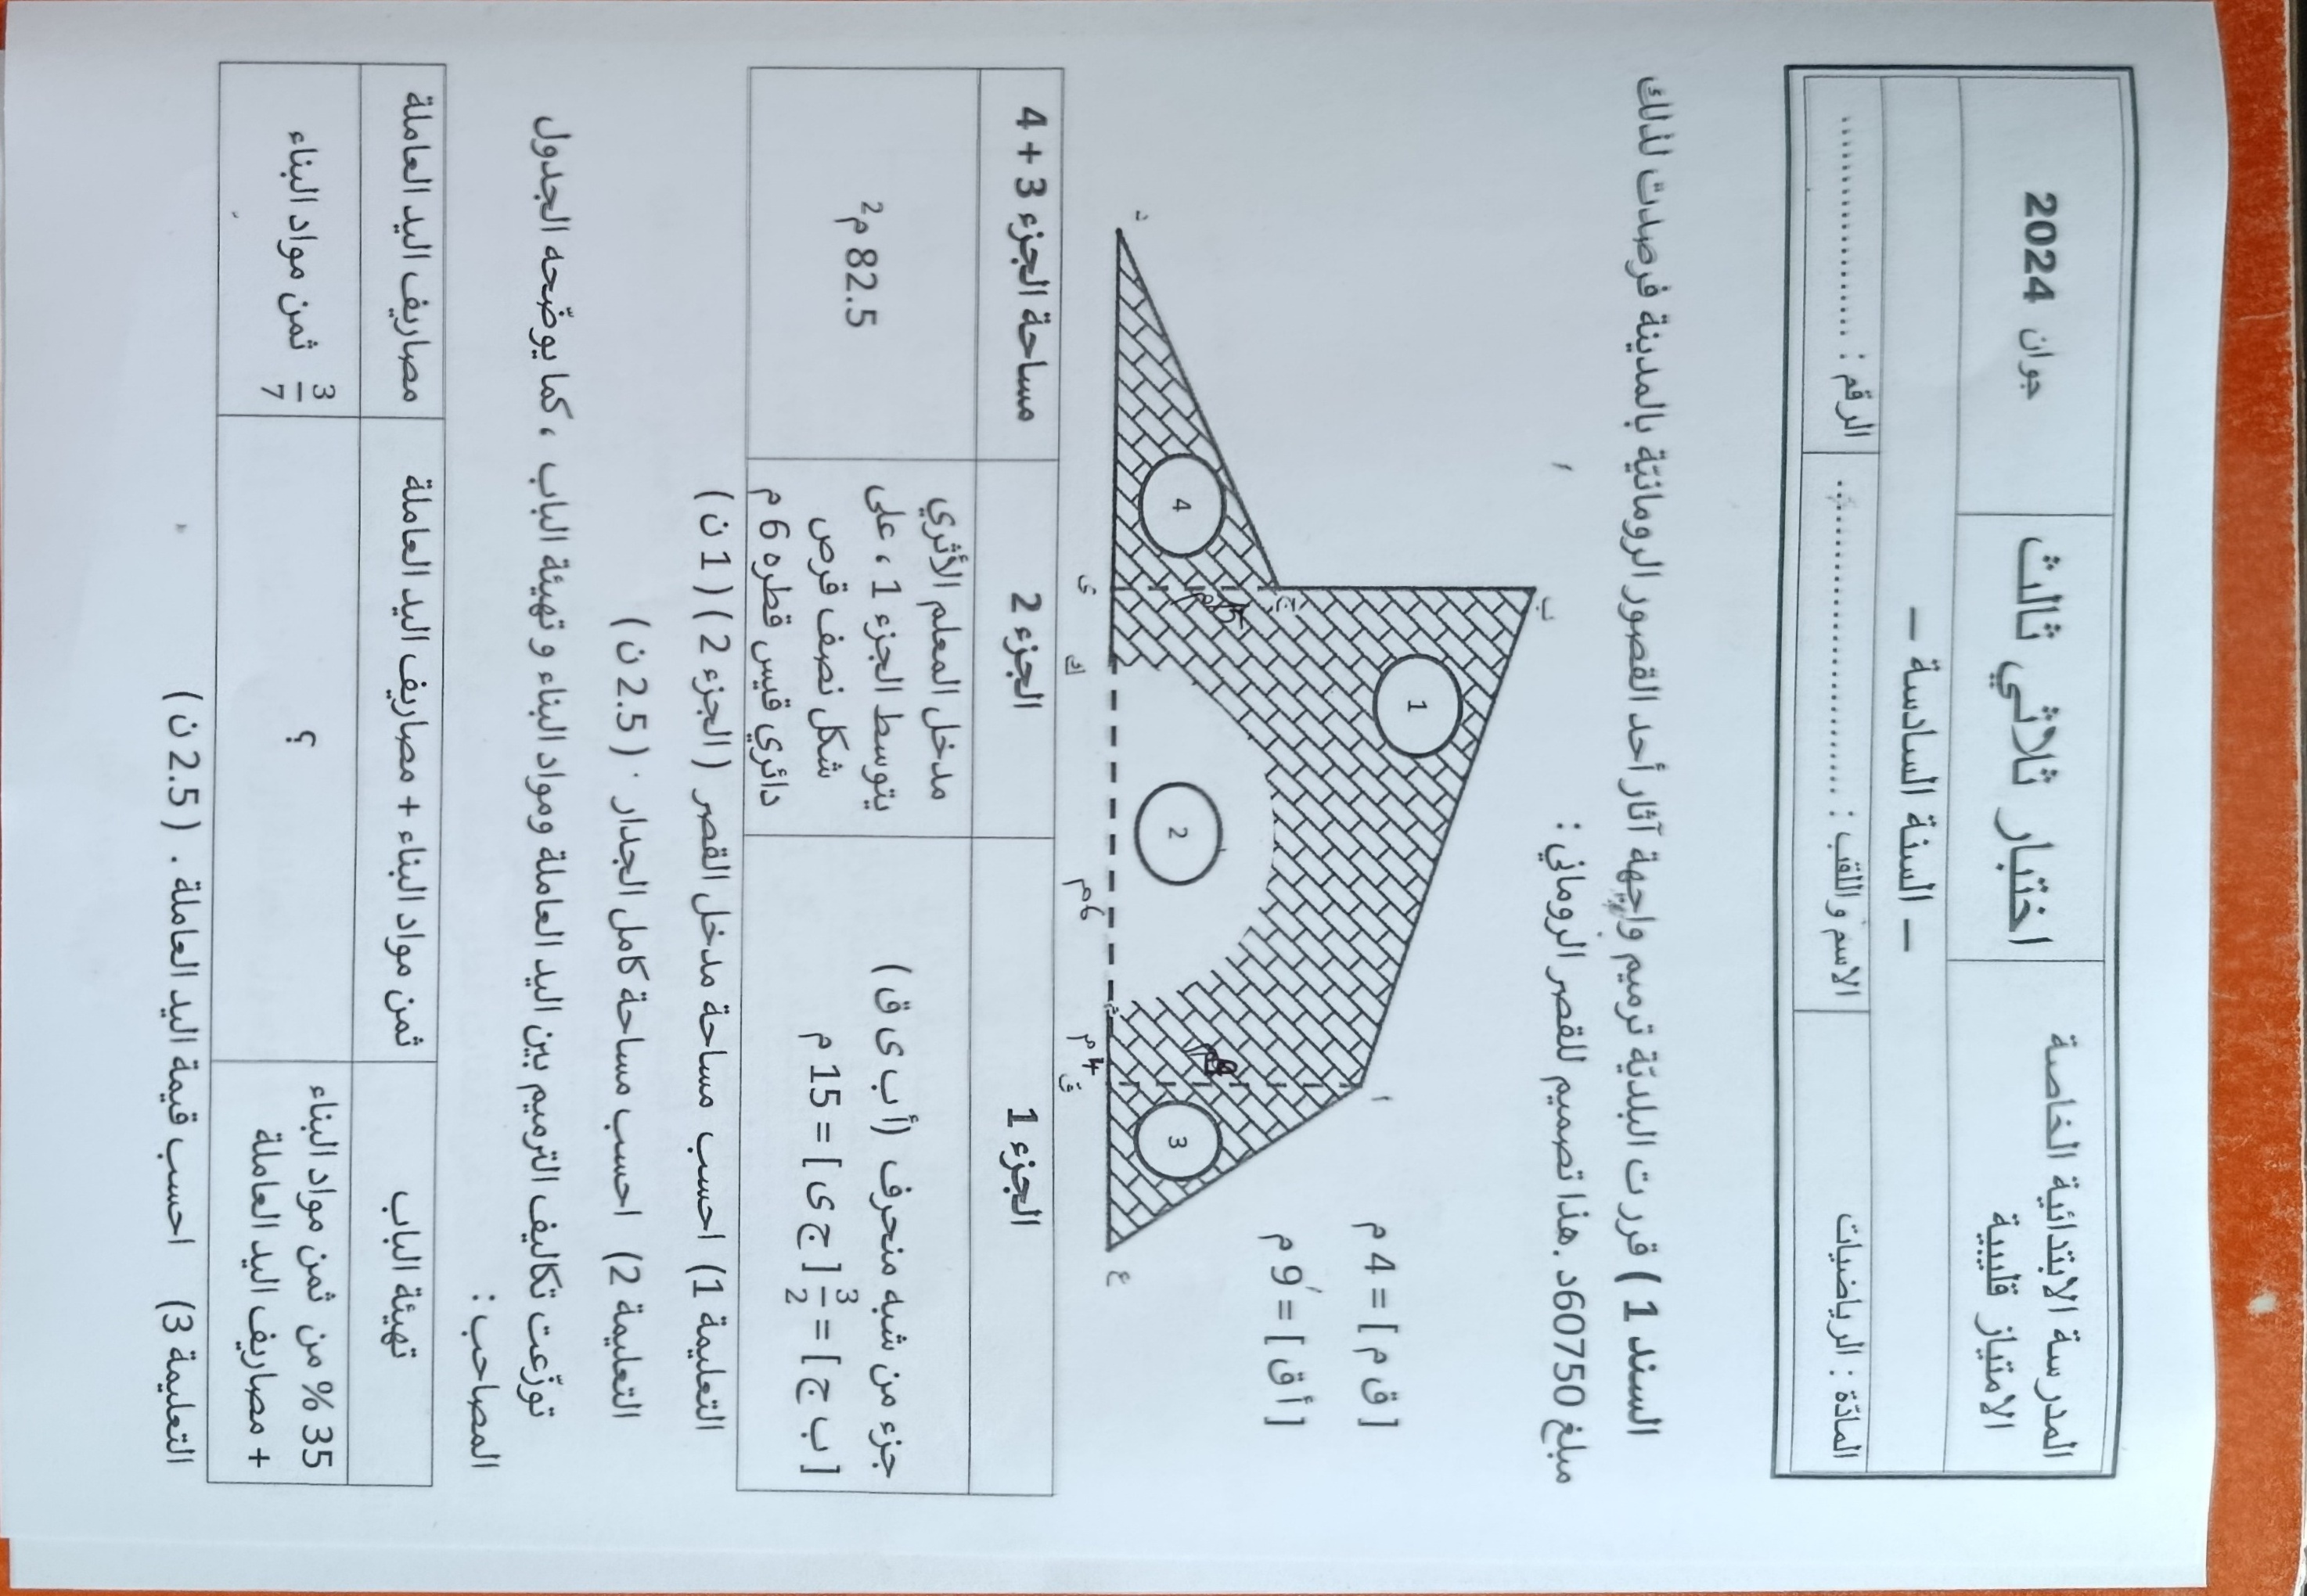 المدرسة الابتدائية الخاصة
الامتياز قليبية
اختبار ثلاثي ثالث
جوان 2024
– السنة السادسة –
المادّة : الرياضيات
الاسم و اللقب : ........................
الرقم : ..................
السند 1 ) قررت البلديّة ترميم واجهة آثار أحد القصور الرومانيّة بالمدينة فرصدت لذلك
مبلغ 60750د. هذا تصميم للقصر الروماني :
[ ق م ] = 4 م
[ أ ق ] = 9 م
ب
أ
1
ج
5م
9م
4
2
3
د
ي
ك
6م
م
4م
ق
ع
الجزء 1
الجزء 2
مساحة الجزء 3 + 4
جزء من شبه منحرف (أ ب ي ق )
[ ب ج ] = 3/2 [ ج ي ] = 15 م
مدخل المعلم الأثري
يتوسط الجزء 1 ، على
شكل نصف قرص
دائري قيس قطره 6 م
82.5 م2
التعليمة 1) احسب مساحة مدخل القصر ( الجزء 2 ) ( 1 ن )
التعليمة 2) احسب مساحة كامل الجدار . ( 2.5 ن )
توزّعت تكاليف الترميم بين اليد العاملة ومواد البناء و تهيئة الباب ، كما يوضّحه الجدول
المصاحب :
تهيئة الباب
ثمن مواد البناء + مصاريف اليد العاملة
مصاريف اليد العاملة
35 % من ثمن مواد البناء
+ مصاريف اليد العاملة
؟
3/7 ثمن مواد البناء
التعليمة 3) احسب قيمة اليد العاملة . ( 2.5 ن )